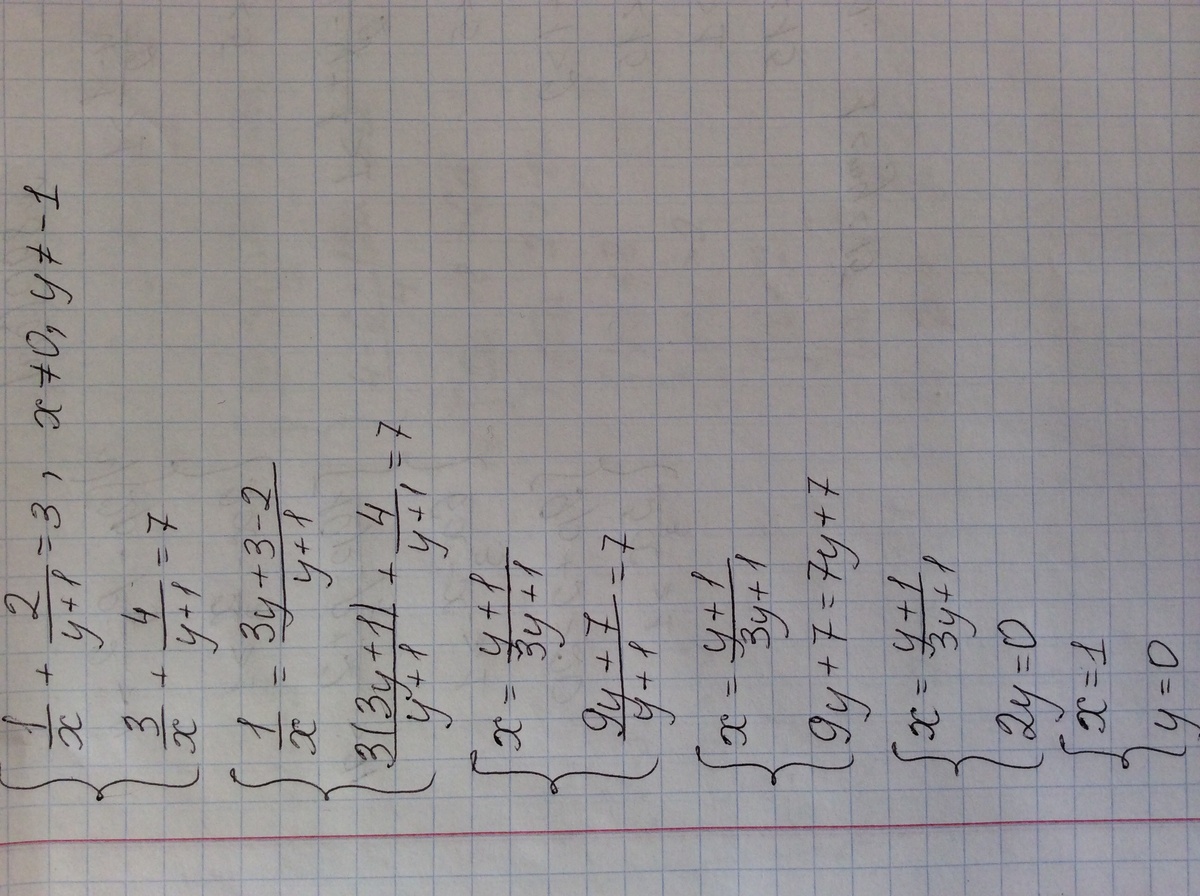 { 1/x + 2/(y+1) = 3, x ≠ 0, y ≠ -1
3/x + 4/(y+1) = 7
{ 1/x = (3y+3-2)/(y+1)
3(3y+1)/(y+1) + 4/(y+1) = 7
{ x = (y+1)/(3y+1)
(9y+7)/(y+1) = 7
{ x = (y+1)/(3y+1)
9y+7 = 7y+7
{ x = (y+1)/(3y+1)
2y = 0
{ x = 1
y = 0